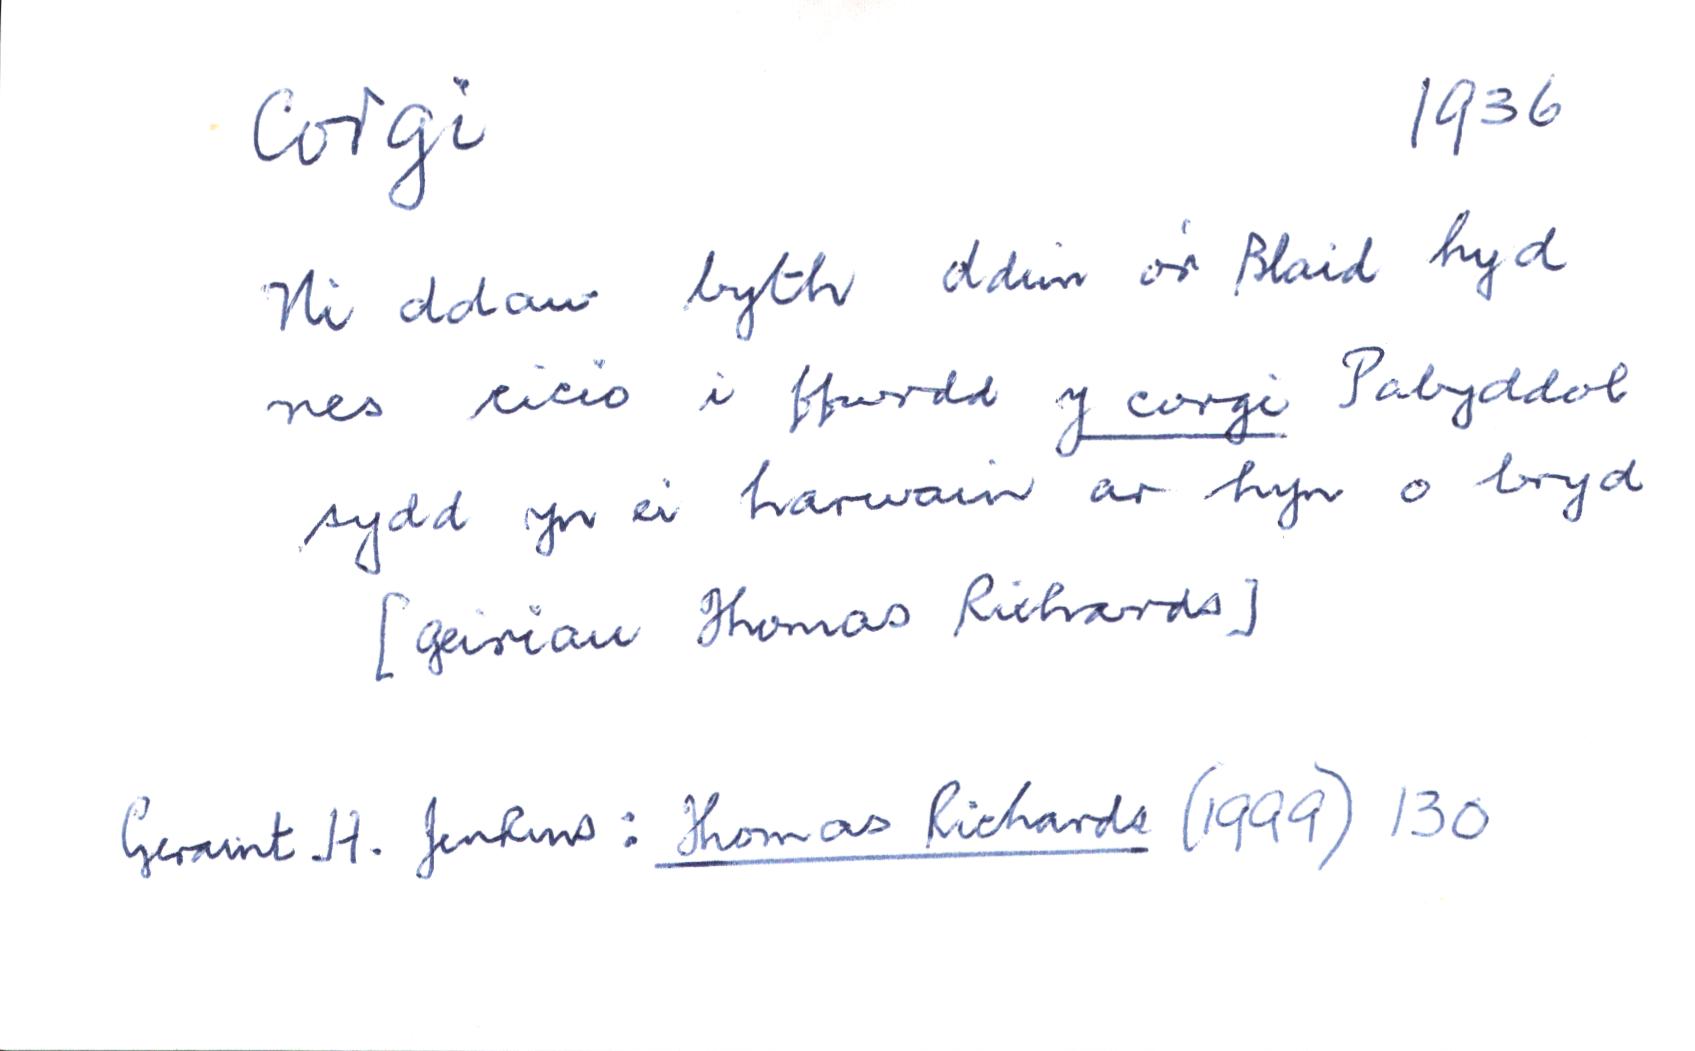 Corgi 1936
Ni ddaw byth ddim o'r Blaid hyd
nes cicio i ffwrdd y corgi Pabyddol
sydd yn ei harwain ar hyn o bryd
[geiriau Thomas Richards]
Geraint H. Jenkins: Thomas Richards (1999) 130